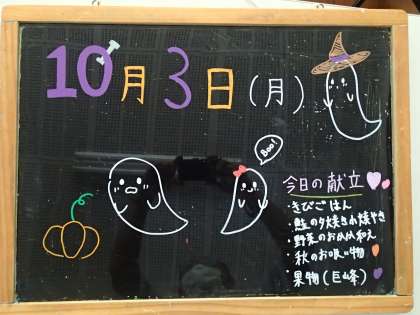 10月3日(月)
Boo!
今日の献立
・きびごはん
・鮭の夕焼け小焼やき
・野菜のおかか和え
・秋のお吸い物
・果物(巨峰)